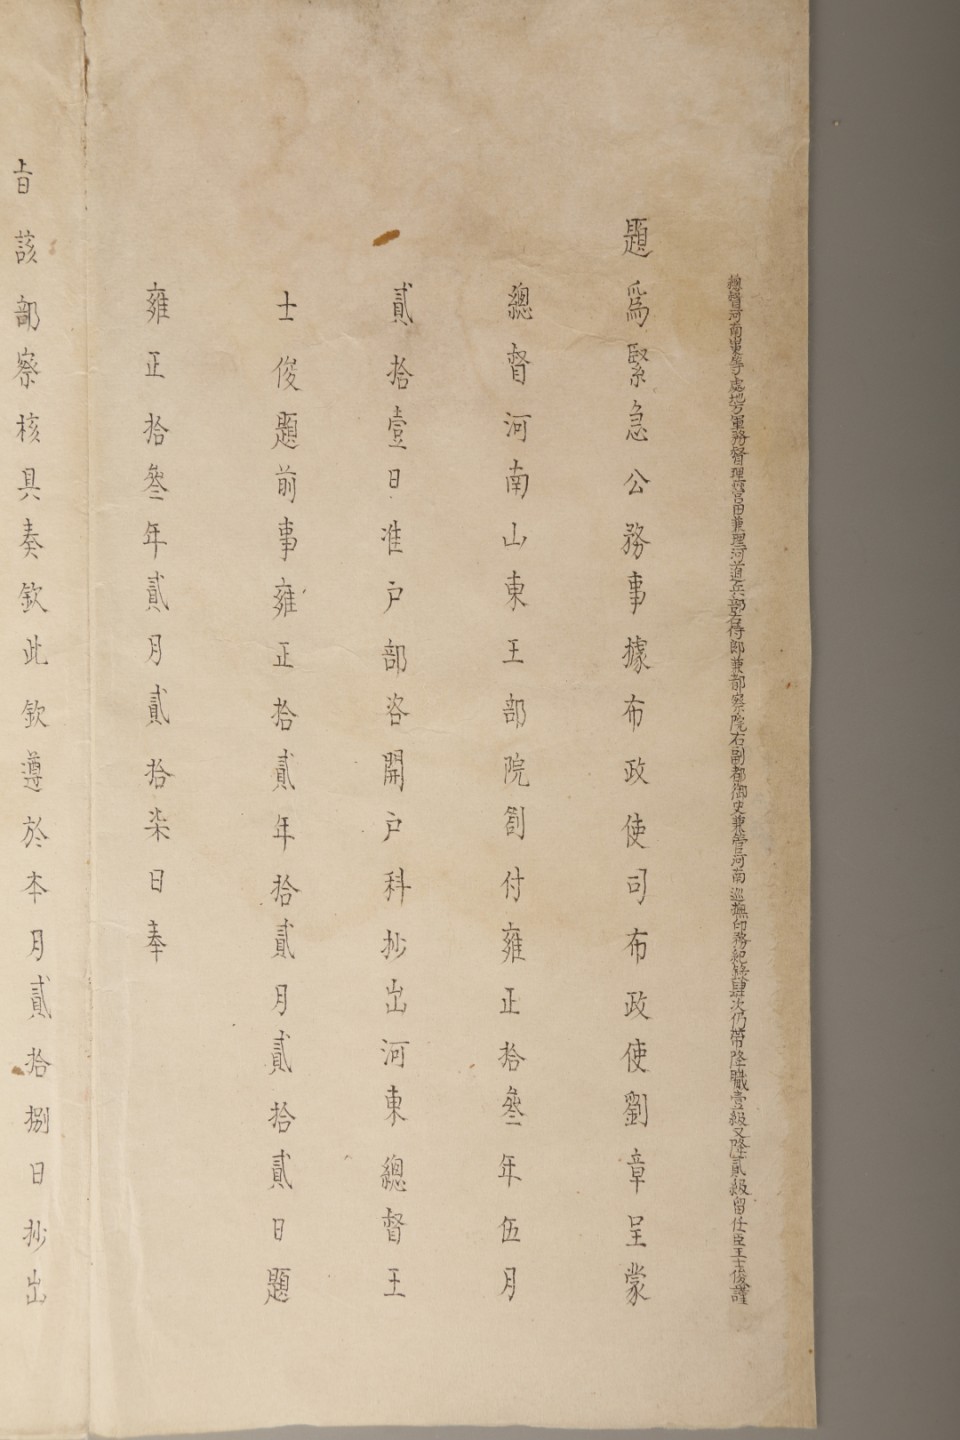 總督河南山東等處地方軍務督理營田兼理河道兵部右侍郎兼都察院右副都御史兼管河南巡撫印務紀錄肆次仍帶降職壹級又降貳級留任臣王士俊謹
題爲緊急公務事據布政使司布政使劉章呈蒙
總督河南山東王部院劄付雍正拾叁年伍月
貳拾壹日准户部咨開户科抄出河東總督王
士俊題前事雍正拾貳年拾貳月貳拾貳日題
雍正拾叁年貳月貳拾柒日奉
旨該部察核具奏欽此欽遵於本月貳拾捌日抄出